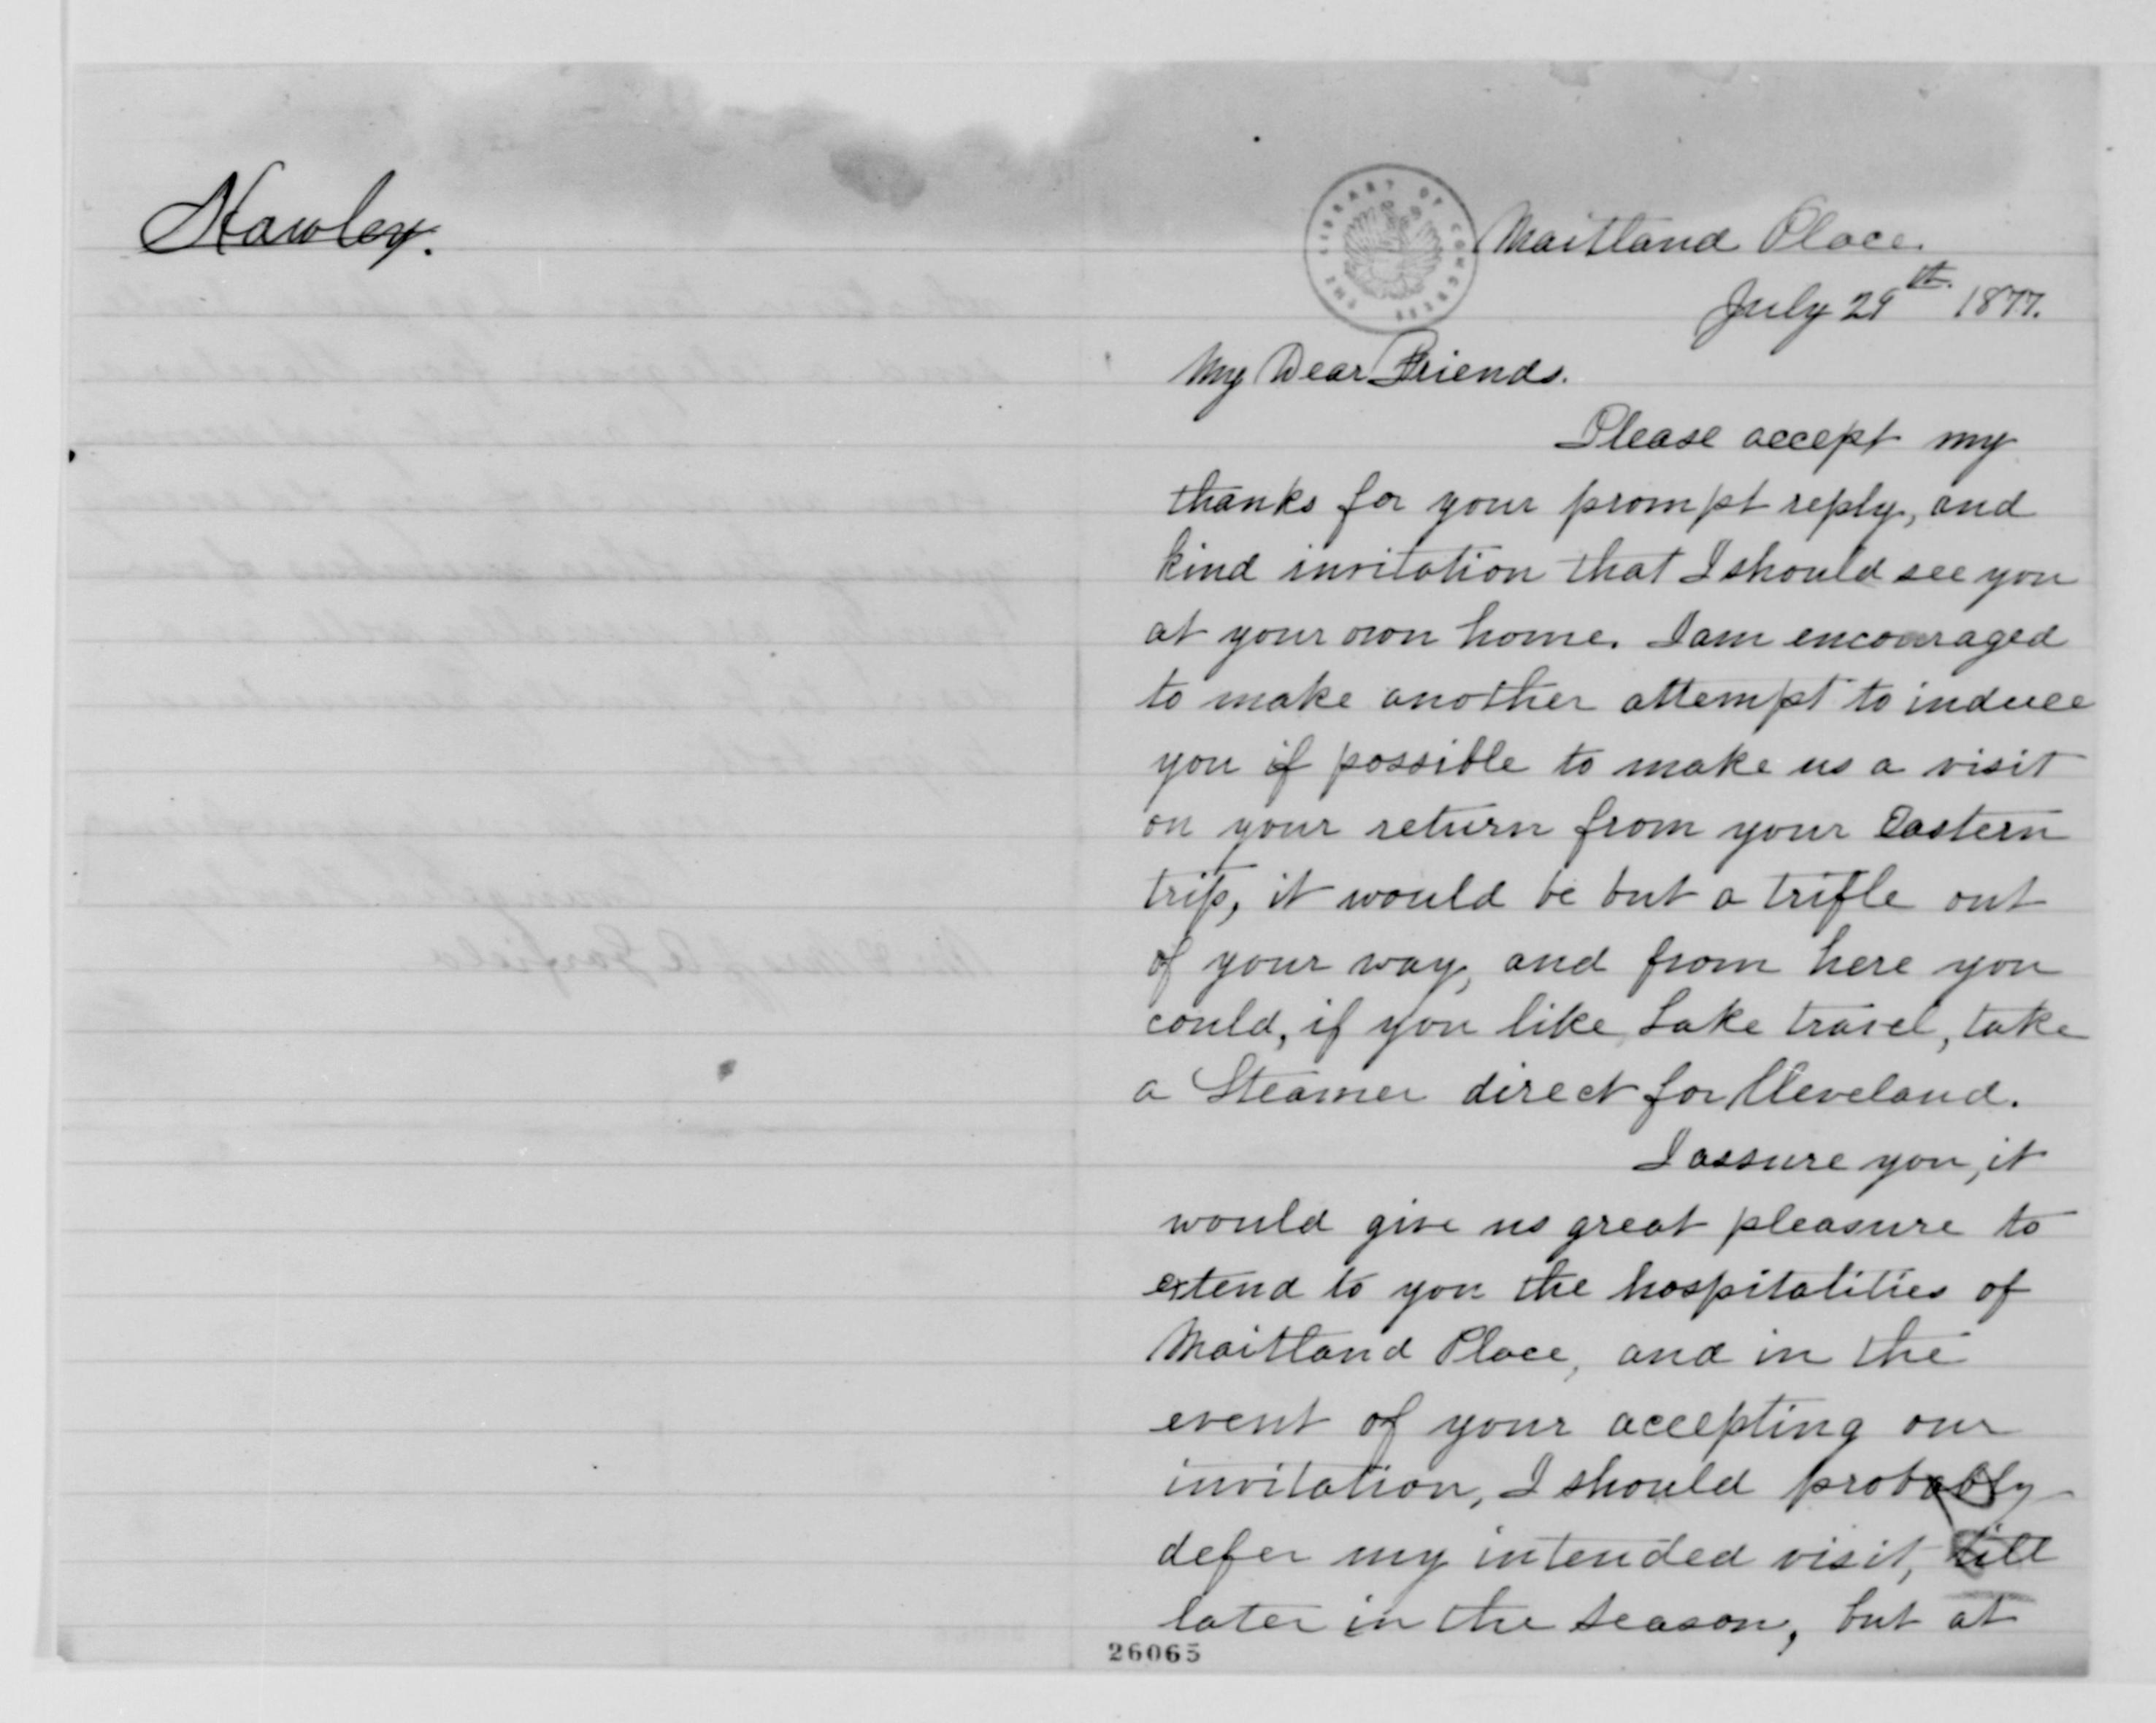 Hawley.
THE LIBRARY OF CONGRESS
Maitland Place.
July 29th 1877.
My Dear Friends.
Please accept my
thanks for your prompt reply, and
kind invitation that I should see you
at your own home. I am encouraged
to make another attempt to induce
you if possible to make us a visit
on your return from your Eastern
trip, it would be but a trifle out
of your way, and from here you
could, if you like Lake travel, take
a Steamer direct for Cleveland.
I assure you, it
would give us great pleasure to
extend to you the hospitalities of
Maitland Place, and in the
event of your accepting our
invitation, I should probably
defer my intended visit, till
later in the season, but at
26065